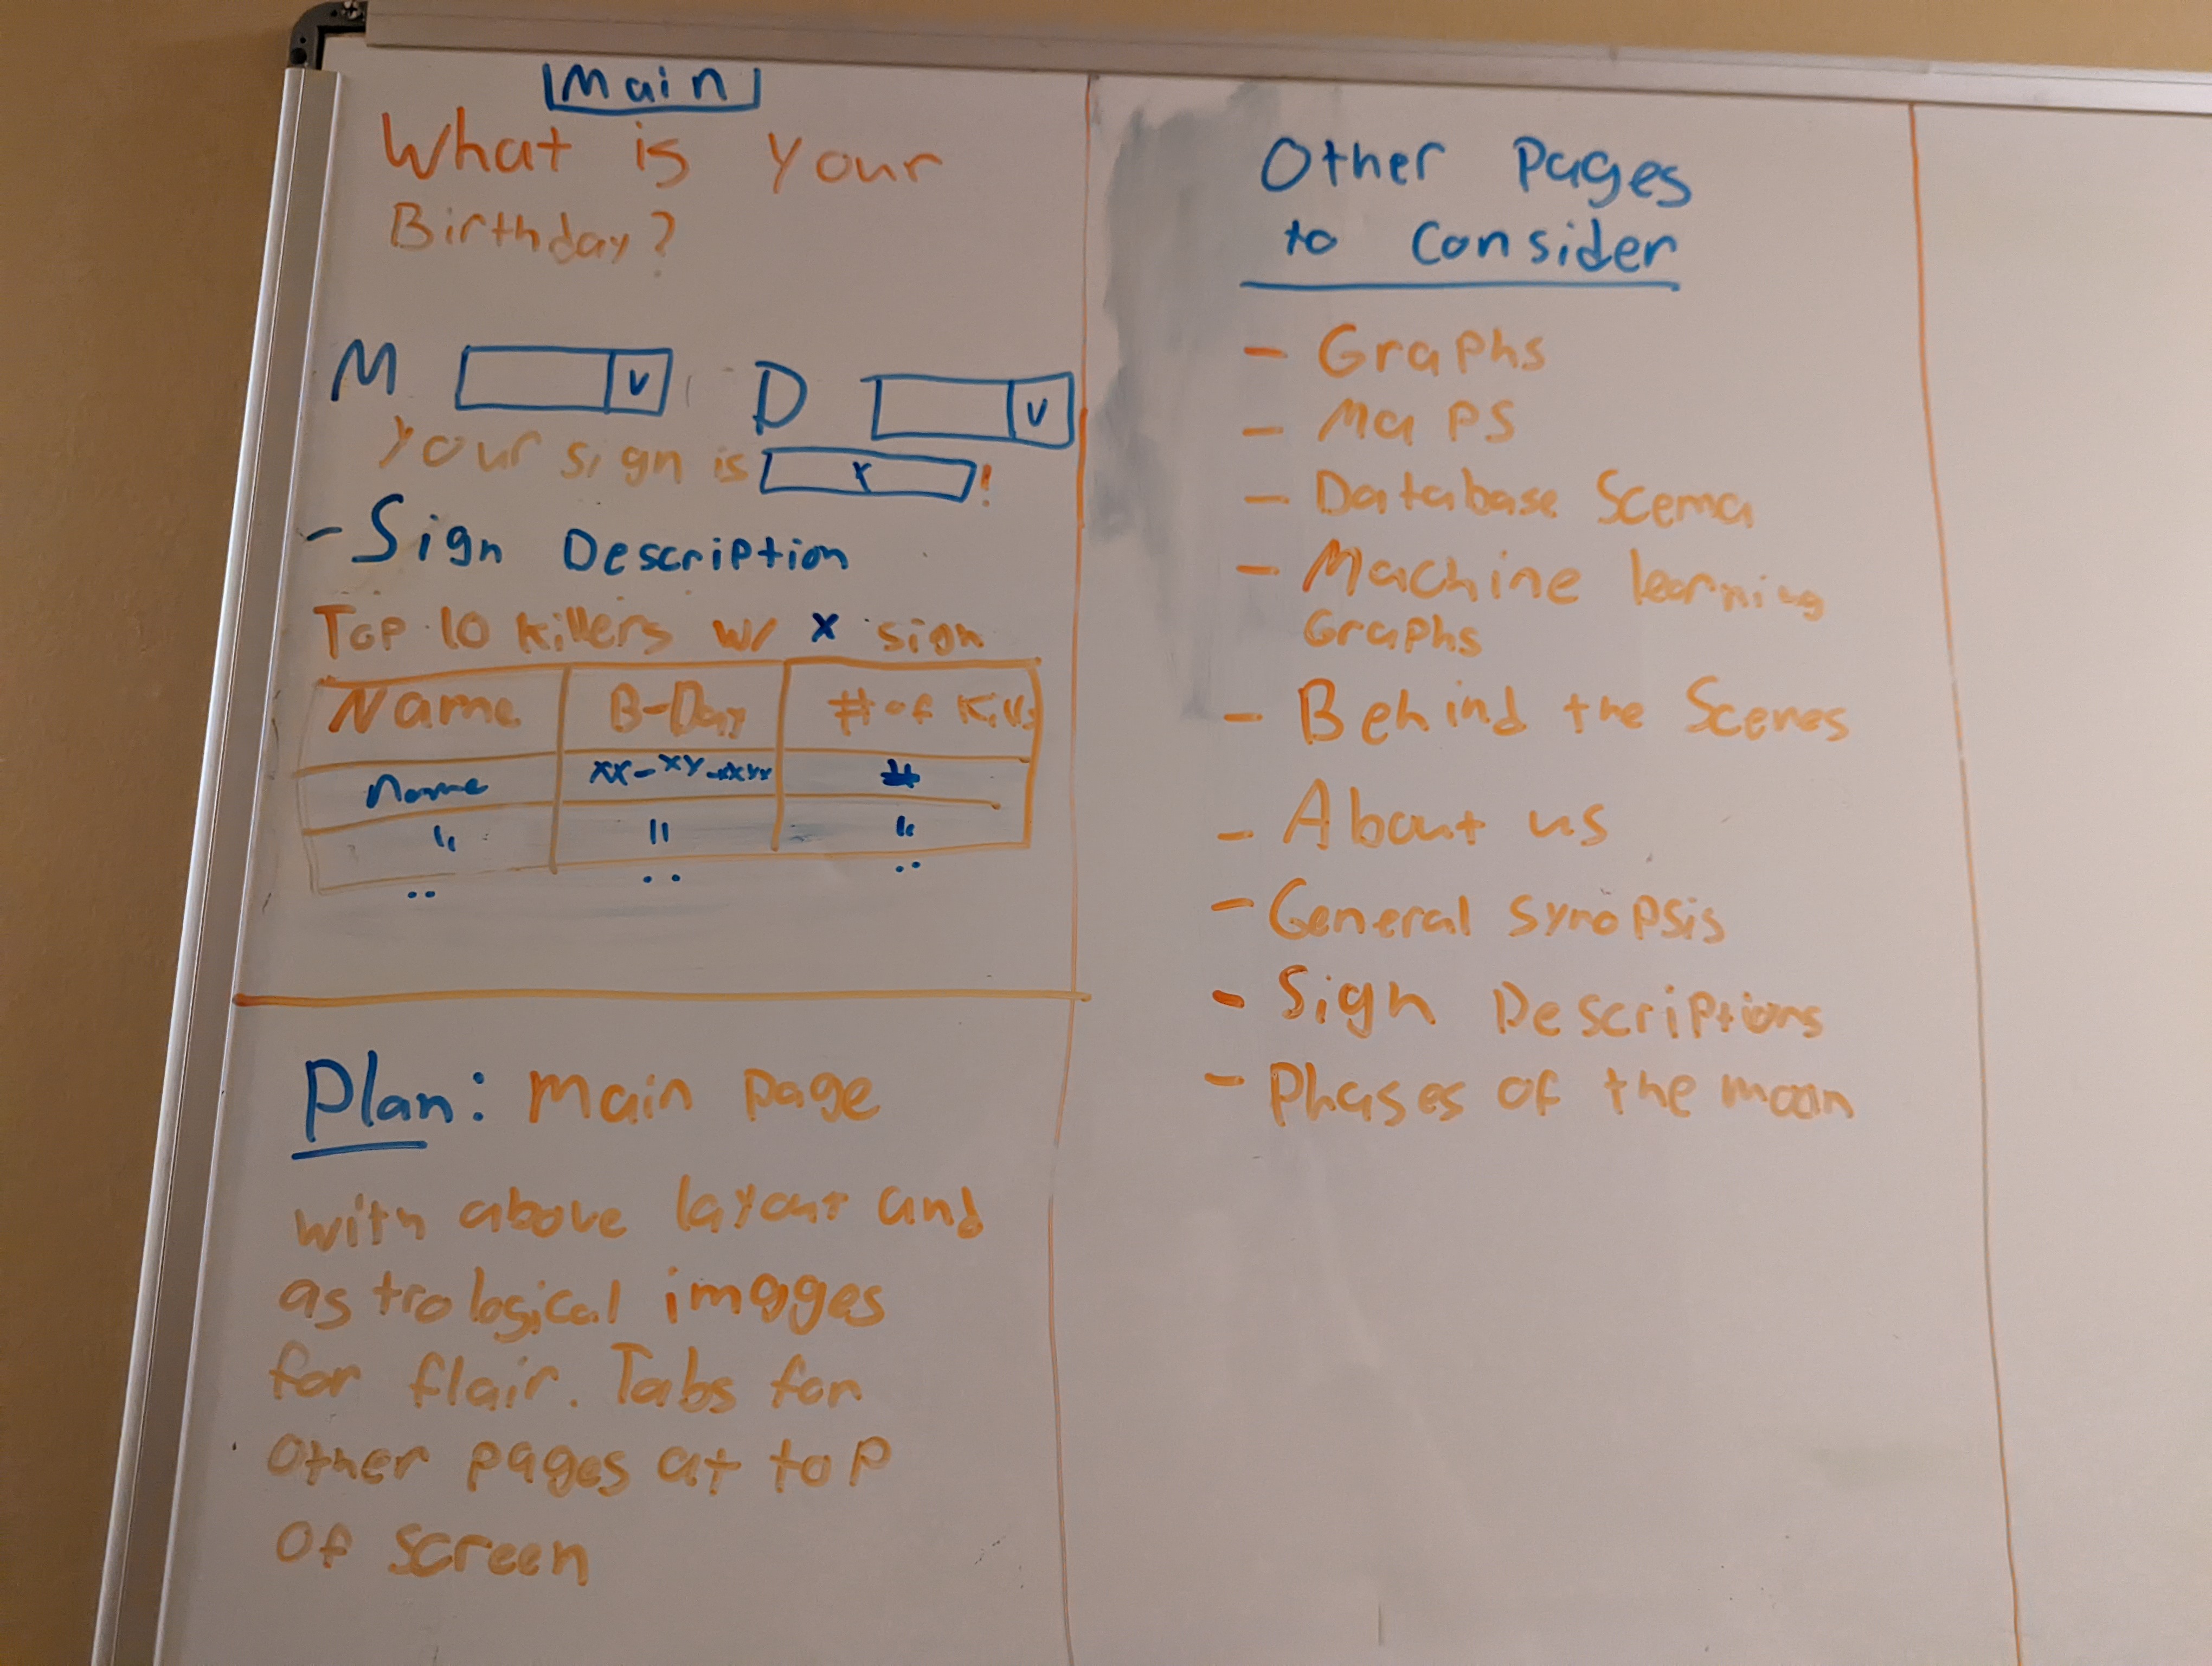 Main
What is Your
Birthday?
M V D V
Your sign is X !
- Sign Description
Top 10 Killers w/ X sign
Name B-Day # of Kills
Name #
" " "
Plan: Main Page
with above layout and
astrological images
for flair. Tabs for
other pages at top
of screen
Other Pages
to Consider
- Graphs
- Maps
- Database Scema
- Machine learning
Graphs
- Behind the Scenes
- About us
- General synopsis
- Sign Descriptions
- Phases of the moon